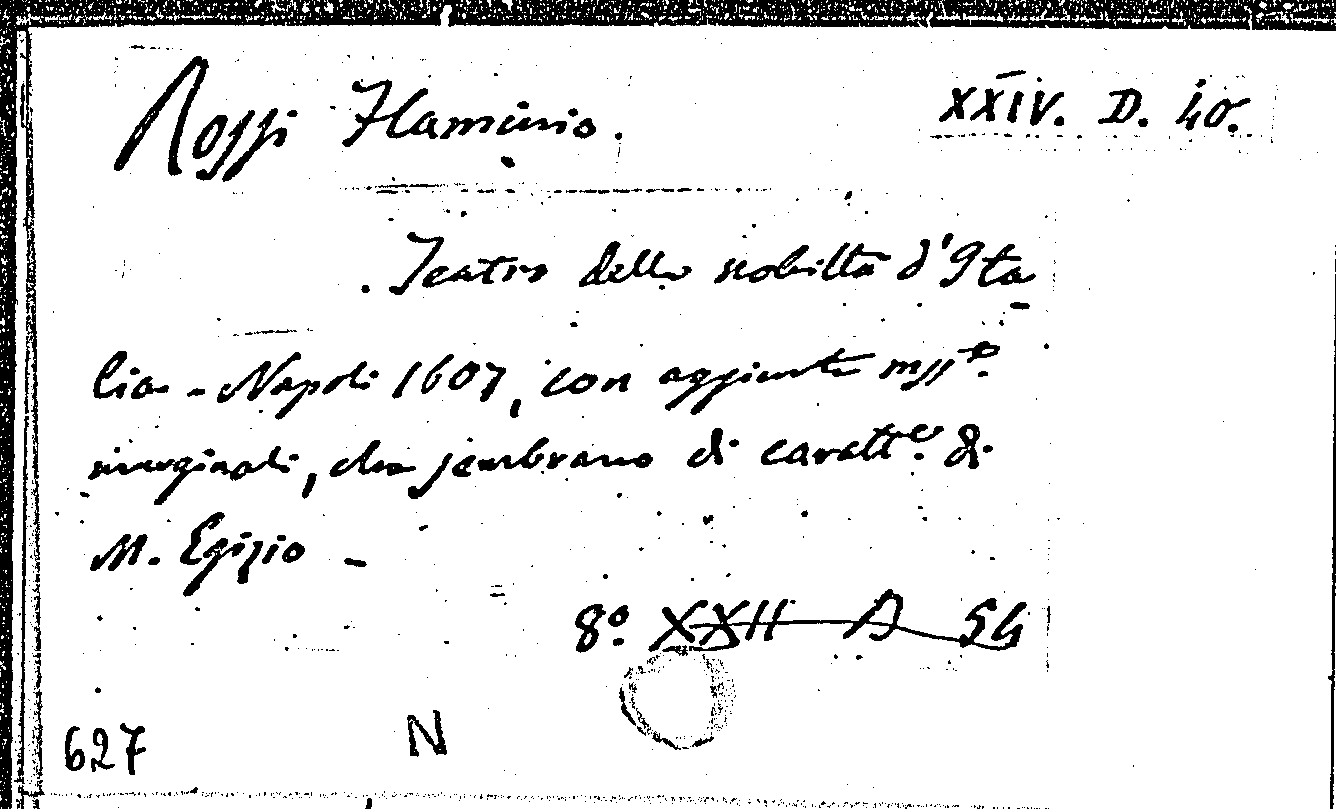 Rossi Flaminio. XXIV. D. 40.
Teatro della nobiltà d'Ita
lia - Napoli 1607, con aggiunte mss.te
marginali, che sembrano di caratt.e di
M. Egizio -
8.º XXII A 54
627 N